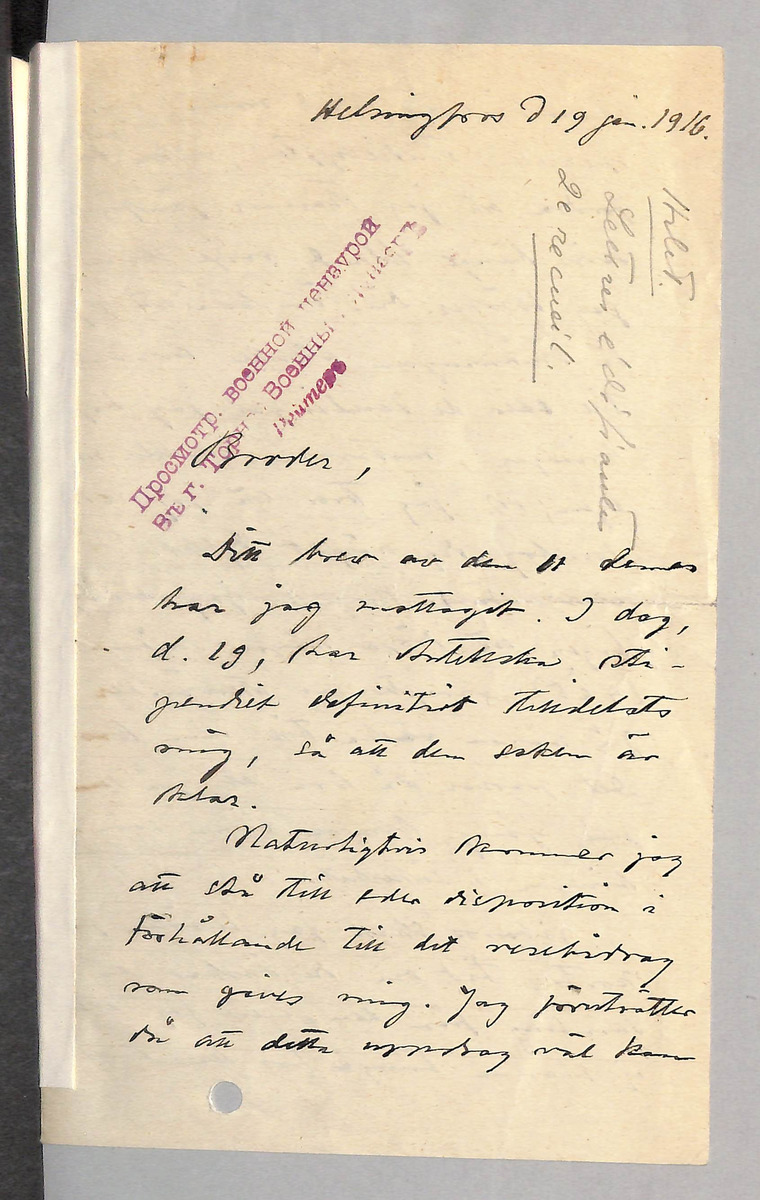 Helsingfors d 19 jan. 1916.
Holst.
Lettres édifiantes
2e recueil.
Просмотр. военной цензурой
въ г. Торнео Военный Цензоръ
Broder,
Ditt brev av den 11 dennes
har jag mottaget. I dag,
d. 19, har Antellska sti-
pendiet definitivt tilldelats
mig, så att den saken är
klar.
Naturligtvis kommer jag
att stå till eder disposition i
förhållande till det resebidrag
som gives mig. Jag förutsätter
då att detta uppdrag väl kan